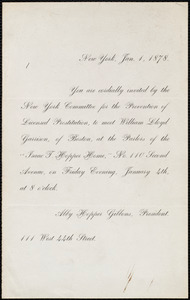 New York, Jan. 1, 1878.
You are cordially invited by the
New York Committee for the Prevention of
Licensed Prostitution, to meet William Lloyd
Garrison, of Boston, at the Parlors of the
"Isaac T. Hopper Home," No. 110 Second
Avenue, on Friday Evening, January 4th,
at 8 o'clock.
Abby Hopper Gibbons, President,
111 West 44th Street.